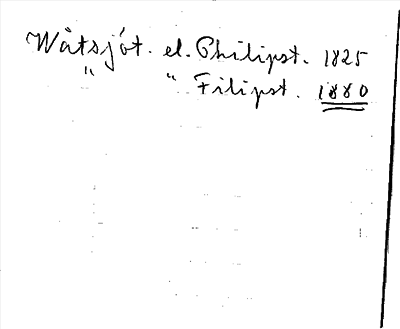 Wåtsjöt. el. Philipst. 1825
" " Filipst. 1880